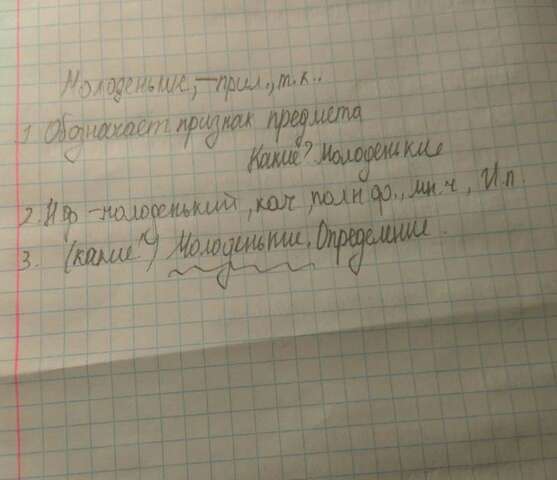 Молоденькие, – прил., т.к..
1 Обозначает признак предмета
Какие? молоденькие
2. Н ф – молоденький, кач, полн ф., мн.ч, И.п.
3. (какие?) Молоденькие. Определение.